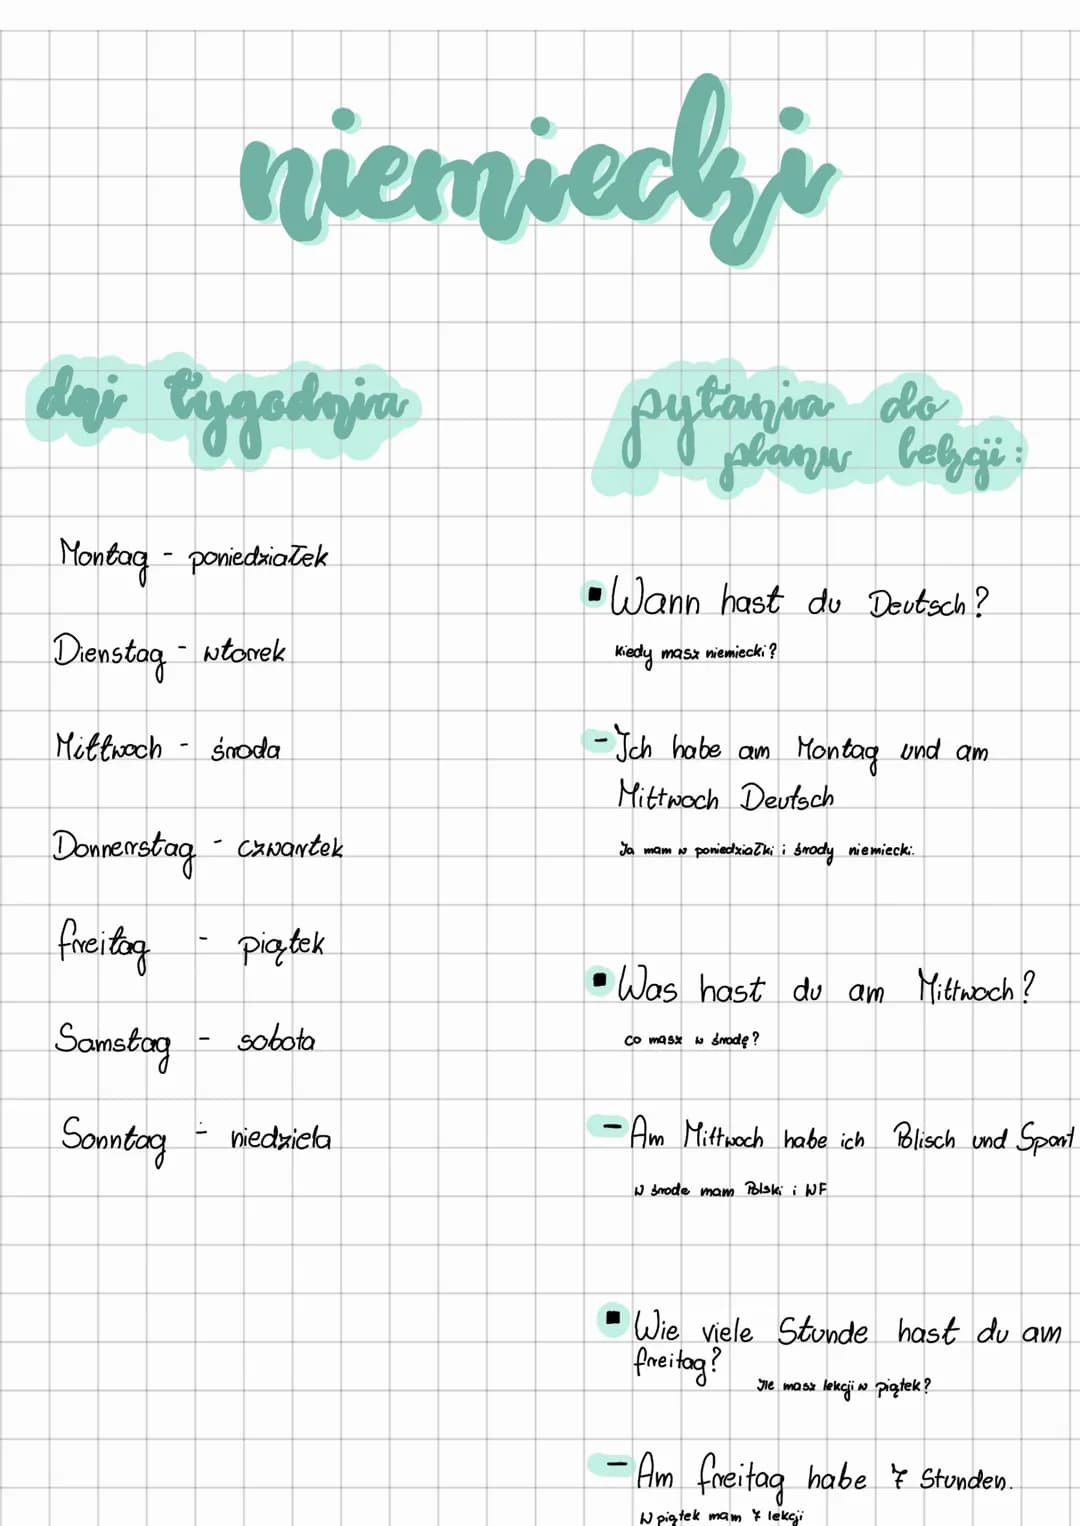 niemiecki
dni tygodnia
Montag - poniedziałek
Dienstag - wtorek
Mittwoch - środa
Donnerstag - czwartek
freitag - piątek
Samstag - sobota
Sonntag - niedziela
pytania do
planu lekcji:
▪ Wann hast du Deutsch?
Kiedy masz niemiecki?
- Ich habe am Montag und am
Mittwoch Deutsch
Ja mam w poniedziałki i środy niemiecki.
▪ Was hast du am Mittwoch?
co masz w środę?
- Am Mittwoch habe ich Polisch und Sport
W środe mam Polski i WF
▪ Wie viele Stunde hast du am
freitag?
Ile masz lekcji w piątek?
- Am freitag habe 7 Stunden.
W piątek mam 7 lekcji